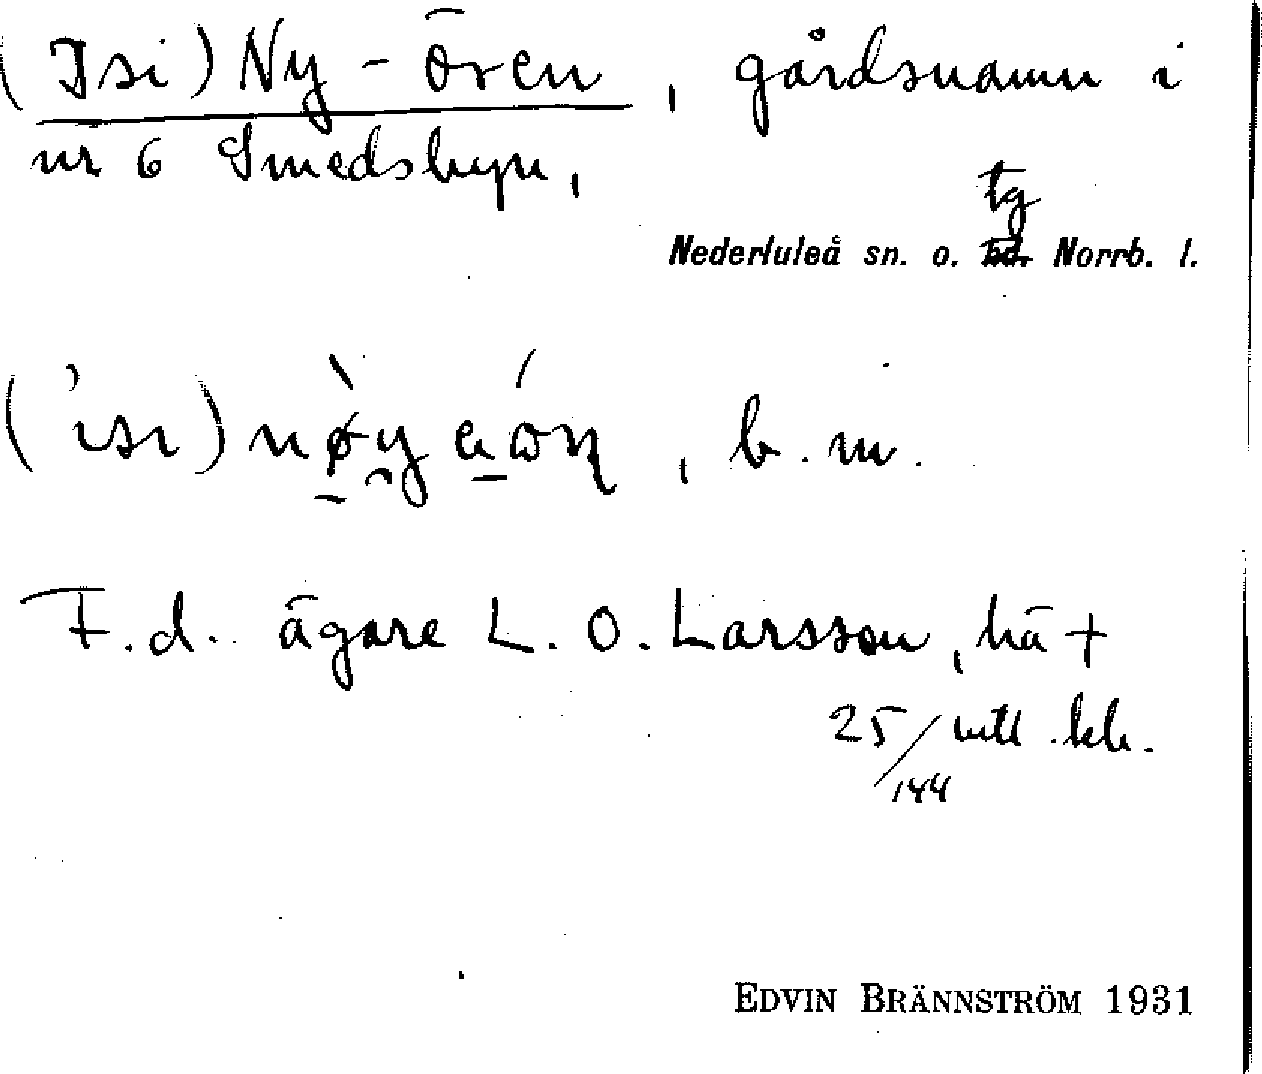 (Isi) Ny-ören, gårdsnamn i
nr 6 Smedsbyn,
tg
Nederluleå sn. o. Norrb. l.
b. m.
F.d. ägare L. O. Larsson, hä +
25/144 mtl. kb.
EDVIN BRÄNNSTRÖM 1931